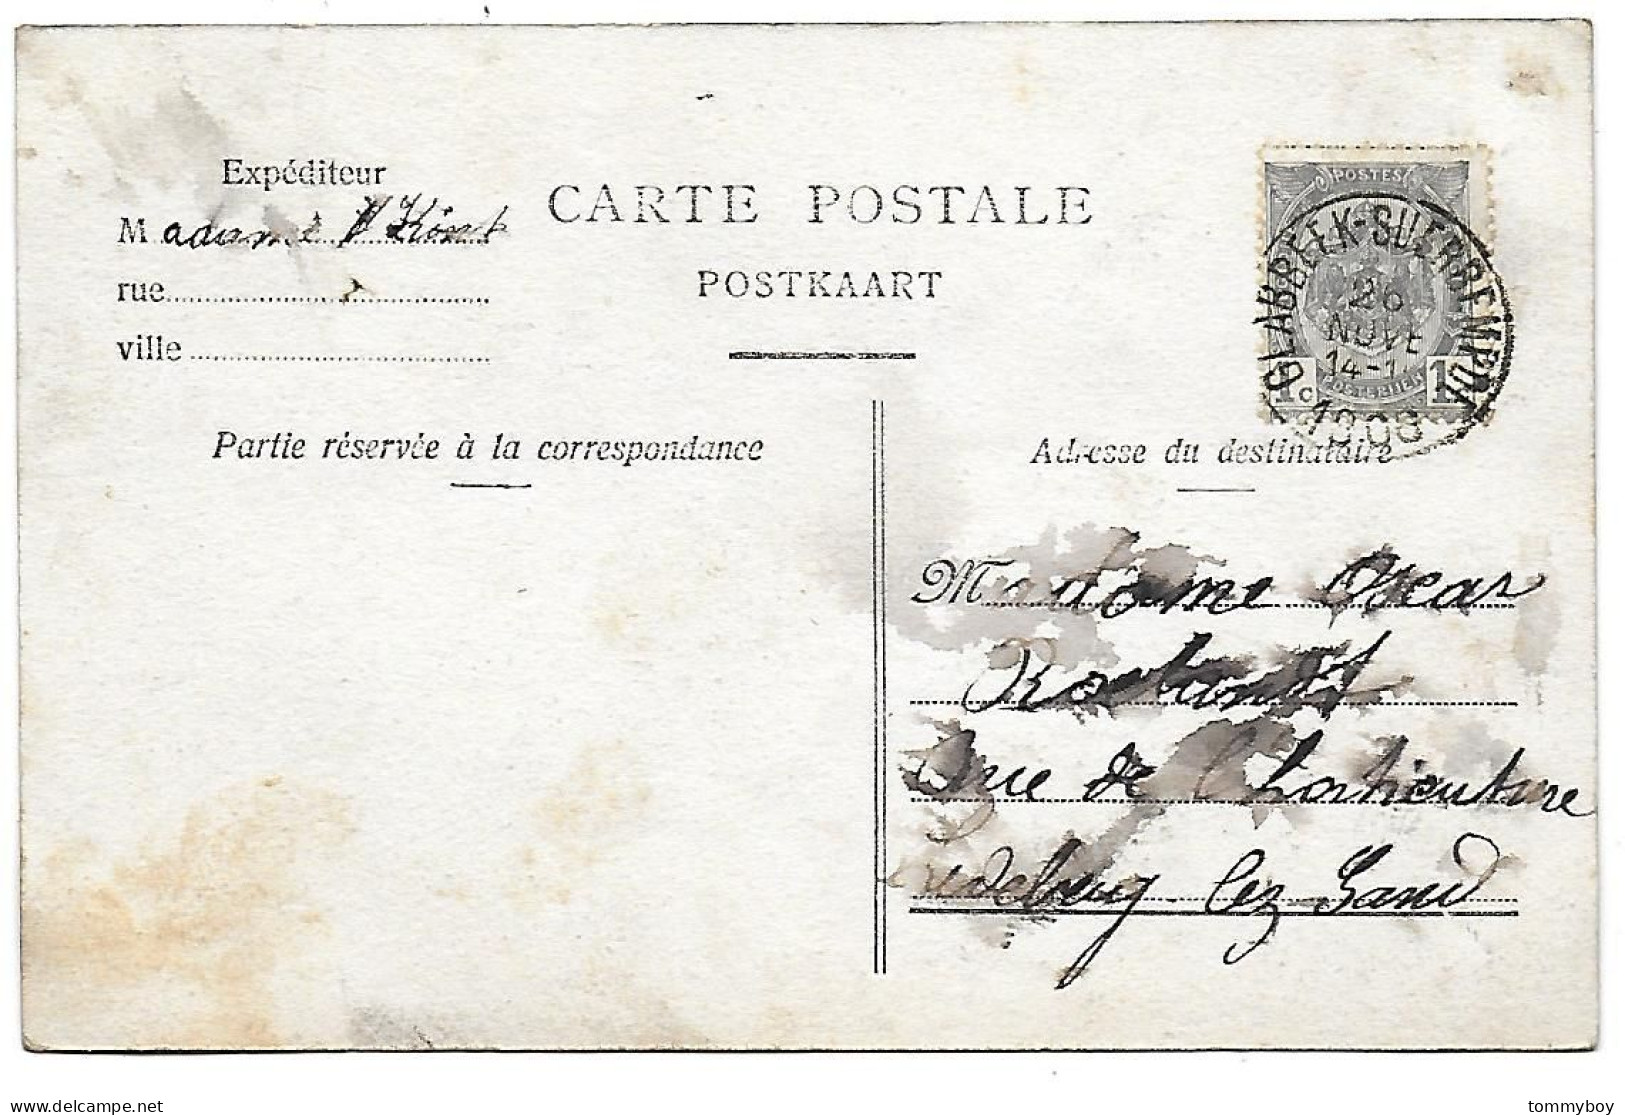 Expéditeur
Madame
rue
ville
CARTE POSTALE
POSTKAART
POSTES
GLABBEEK-SUERBEMPDE
26
NOVE
14-1
1908
1 c 1
POSTERIJEN
Partie réservée à la correspondance
Adresse du destinataire
Madame Oscar
Rue de l'horticulture
Ledeberg lez Gand
delcampe.net
tommyboy